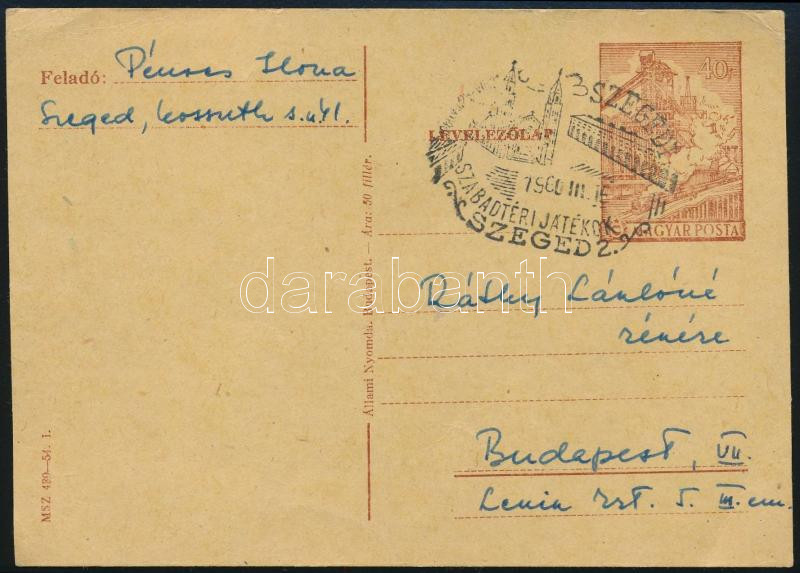 Feladó: Ilona
Szeged, Kossuth s.út 1.
LEVELEZŐLAP
40f
MAGYAR POSTA
SZEGED
1960 III. 15
SZABADTÉRI JÁTÉKOK
SZEGED 2.
darabanth
Ráthy Lászlóné
részére
Budapest, VII.
Lenin krt. 5. III. em.
Állami Nyomda, Budapest. — Ára: 50 fillér.
MSZ 480—54. I.